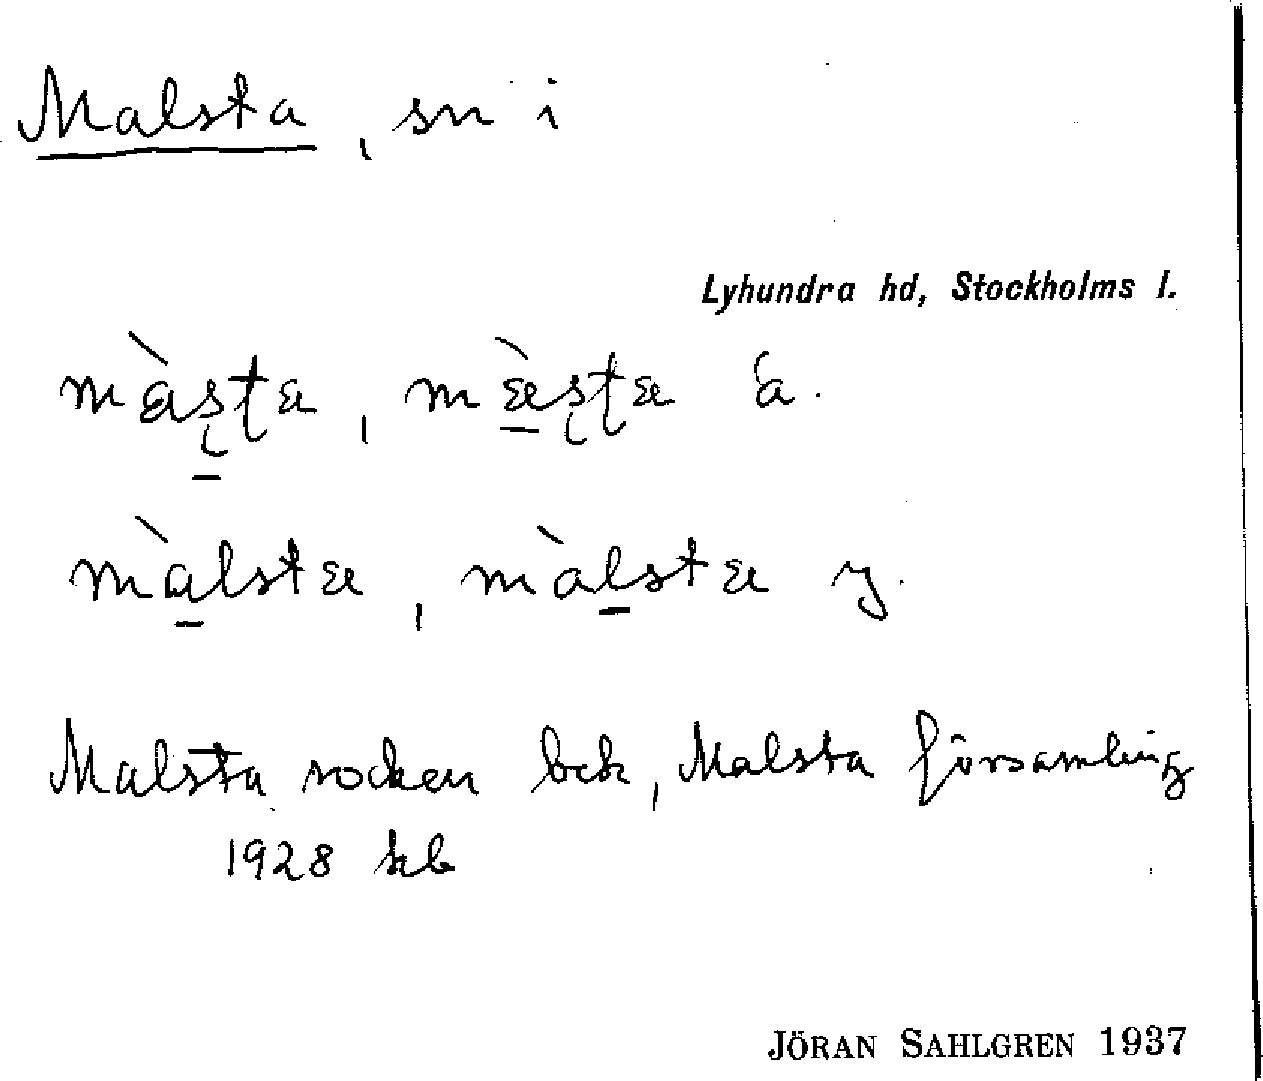 Malsta, sn i
Lyhundra hd, Stockholms l.
màʂ̱ʈa, mæ̱̀ʂʈæ ä.
mà̱lstæ, màḻstæ y.
Malsta socken bck, Malsta församling
1928 kb
JÖRAN SAHLGREN 1937